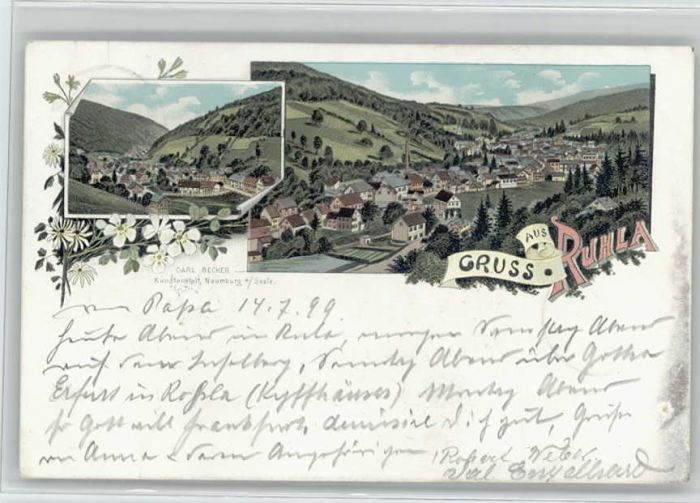 GRUSS AUS RUHLA
CARL BECKER
Kunstanstalt, Naumburg a/Saale.
Papa 14.7.99.
Heute Abend in Rula, morgen Samstag Abend
auf dem Inselberg, Sonntag Abend über Gotha
Erfurt in Roßla (Kyffhäuser) Montag Abend
so Gott will Frankfurt, Dich gut, Grüße
an Anna & deren Angehörigen Robert Weber
Engelhard